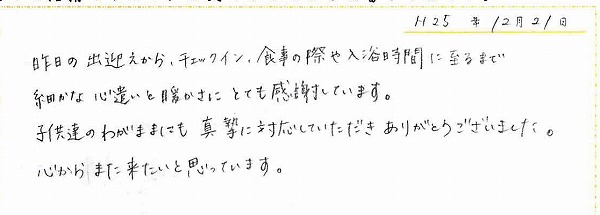 H25 年 12月21日
昨日の出迎えから、チェックイン、食事の際や入浴時間に至るまで
細かな心遣いと暖かさにとても感謝しています。
子供達のわがままにも真摯に対応していただきありがとうございました。
心からまた来たいと思っています。